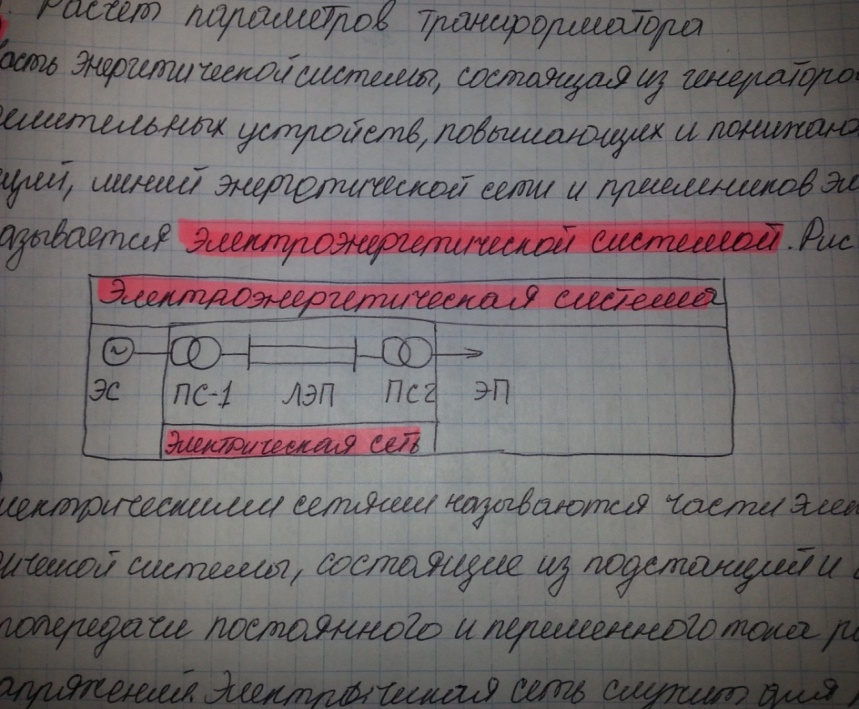 Расчет параметров трансформатора
асть энергетической системы, состоящая из генераторо
елительных устройств, повышающих и понижаю
ций, линий энергетической сети и приемников эл
азывается электроэнергетической системой. Рис
Электроэнергетическая система
~
ЭС ПС-1 ЛЭП ПС2 ЭП
Электрическая сеть
лектрическими сетями называются части элек
ической системы, состоящие из подстанций и
попередачи постоянного и переменного тока ра
апряжений. Электрическая сеть служит для